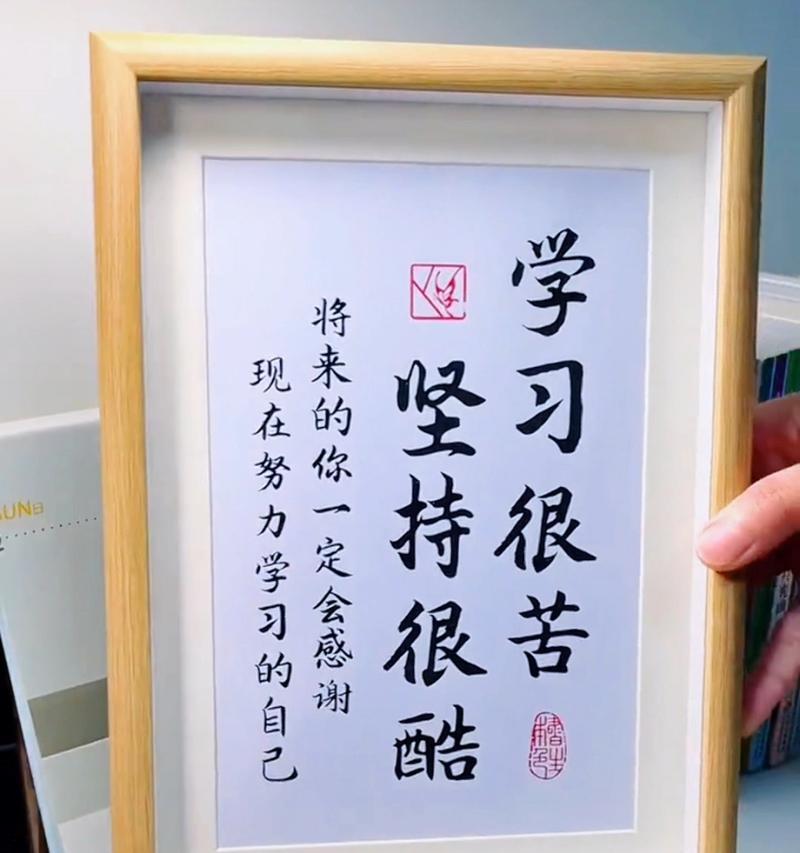 学习很苦
坚持很酷
将来的你一定会感谢
现在努力学习的自己
SUN日